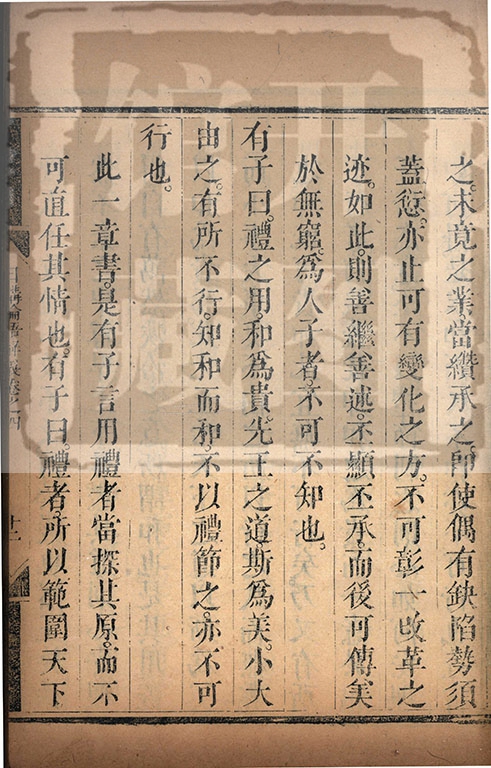 之未竟之業當纘承之卽使偶有缺陷勢須
蓋愆亦止可有變化之方不可彰一改革之
迹如此則善繼善述丕顯丕承而後可傳美
於無窮爲人子者不可不知也
有子曰禮之用和爲貴先王之道斯爲美小大
由之有所不行知和而和不以禮節之亦不可
行也
此一章書是有子言用禮者當探其原而不
可直任其情也有子曰禮者所以範圍天下
日講四書解義卷之四
十二